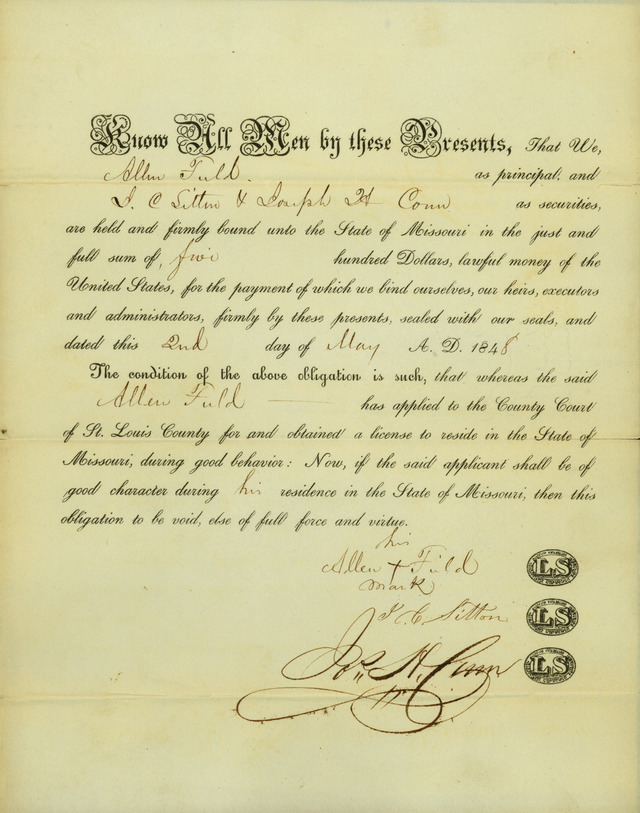 Know All Men by these Presents, That We,
Allen Field. as principal, and
I. C Sitton & Joseph H Conn as securities,
are held and firmly bound unto the State of Missouri in the just and
full sum of, five hundred Dollars, lawful money of the
United States, for the payment of which we bind ourselves, our heirs, executors
and administrators, firmly by these presents, sealed with our seals, and
dated this 2nd day of May A. D. 1848
The condition of the above obligation is such, that whereas the said
Allen Field has applied to the County Court
of St. Louis County for and obtained a license to reside in the State of
Missouri, during good behavior: Now, if the said applicant shall be of
good character during his residence in the State of Missouri, then this
obligation to be void, else of full force and virtue.
his
Allen + Field LS
mark
Sitton LS
Jos. H. Conn LS